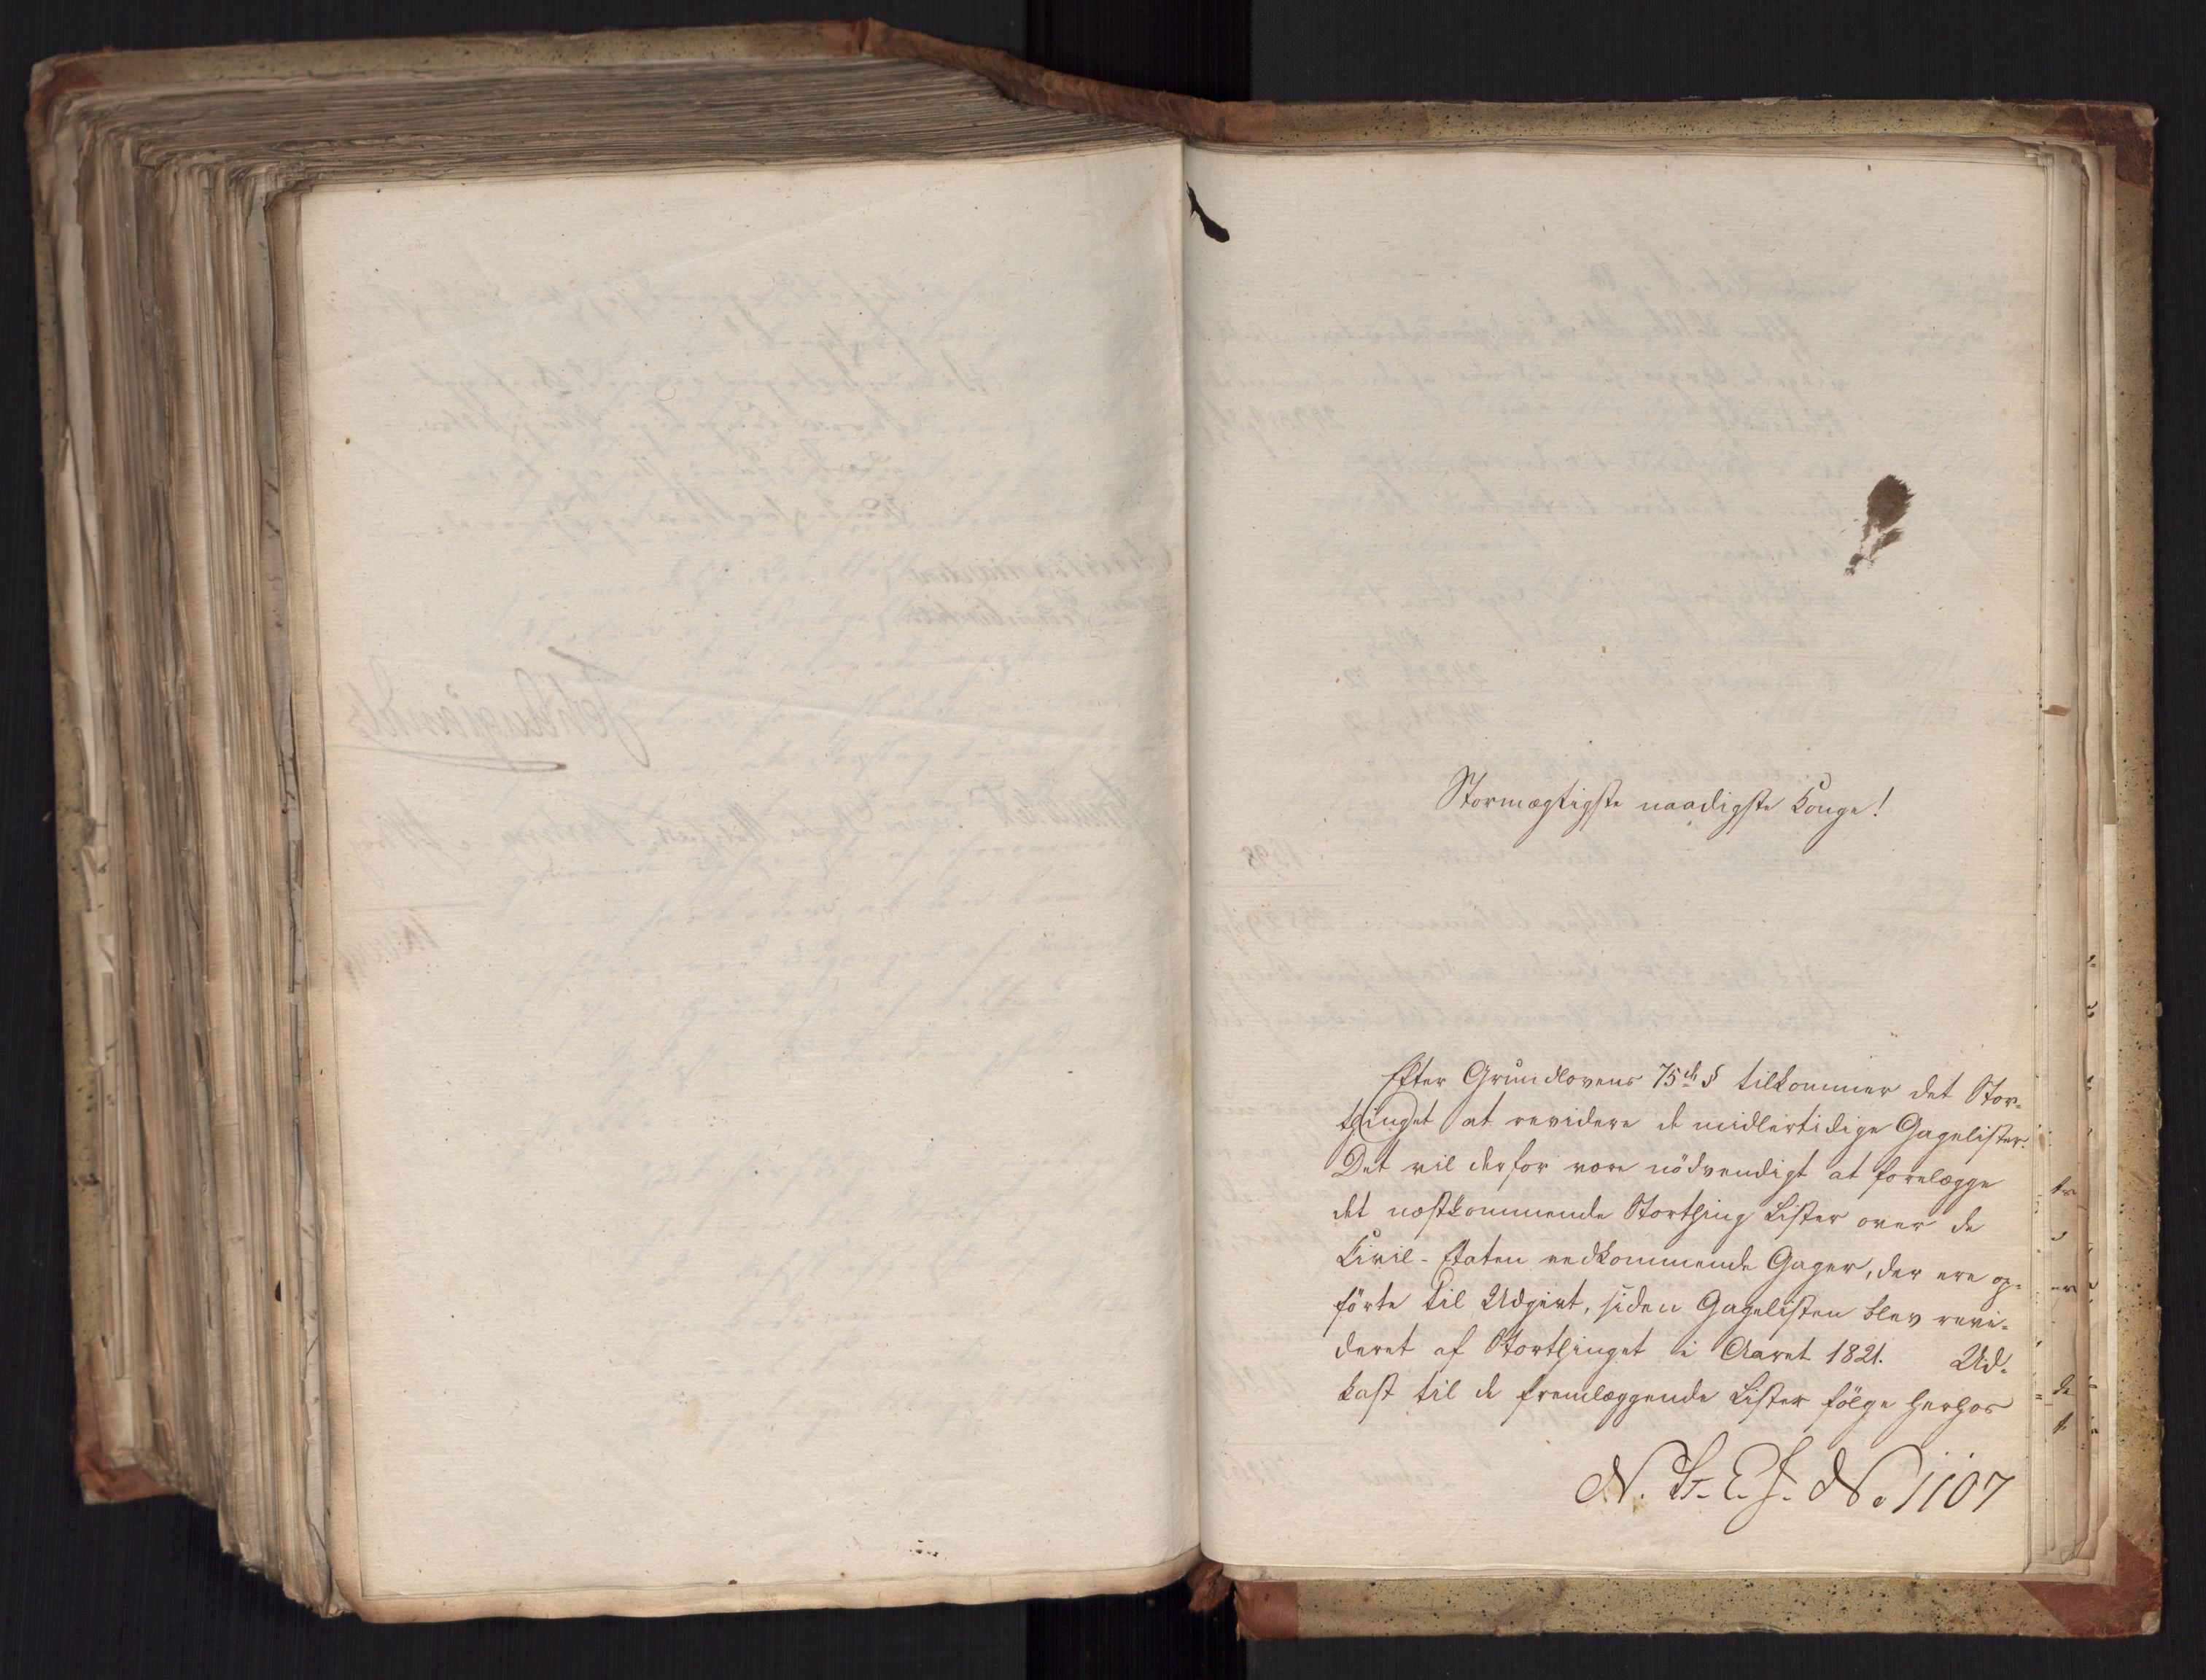 Stormægtigste naadigste Konge!
Efter Grundlovens 75de § tilkommer det Stor-
thinget at revidere de midlertidige Gagelister.
Det vil derfor være nödvendigt at forelægge
det næstkommende Storthing Lister over de
Civil-Etaten vedkommende Gager, der ere op-
förte til Udgivt, siden Gagelisten blev revi-
deret af Storthinget i Aaret 1821. Ud-
kast til de fremlæggende Lister fölge herhos
N. St. E. J. No 1107